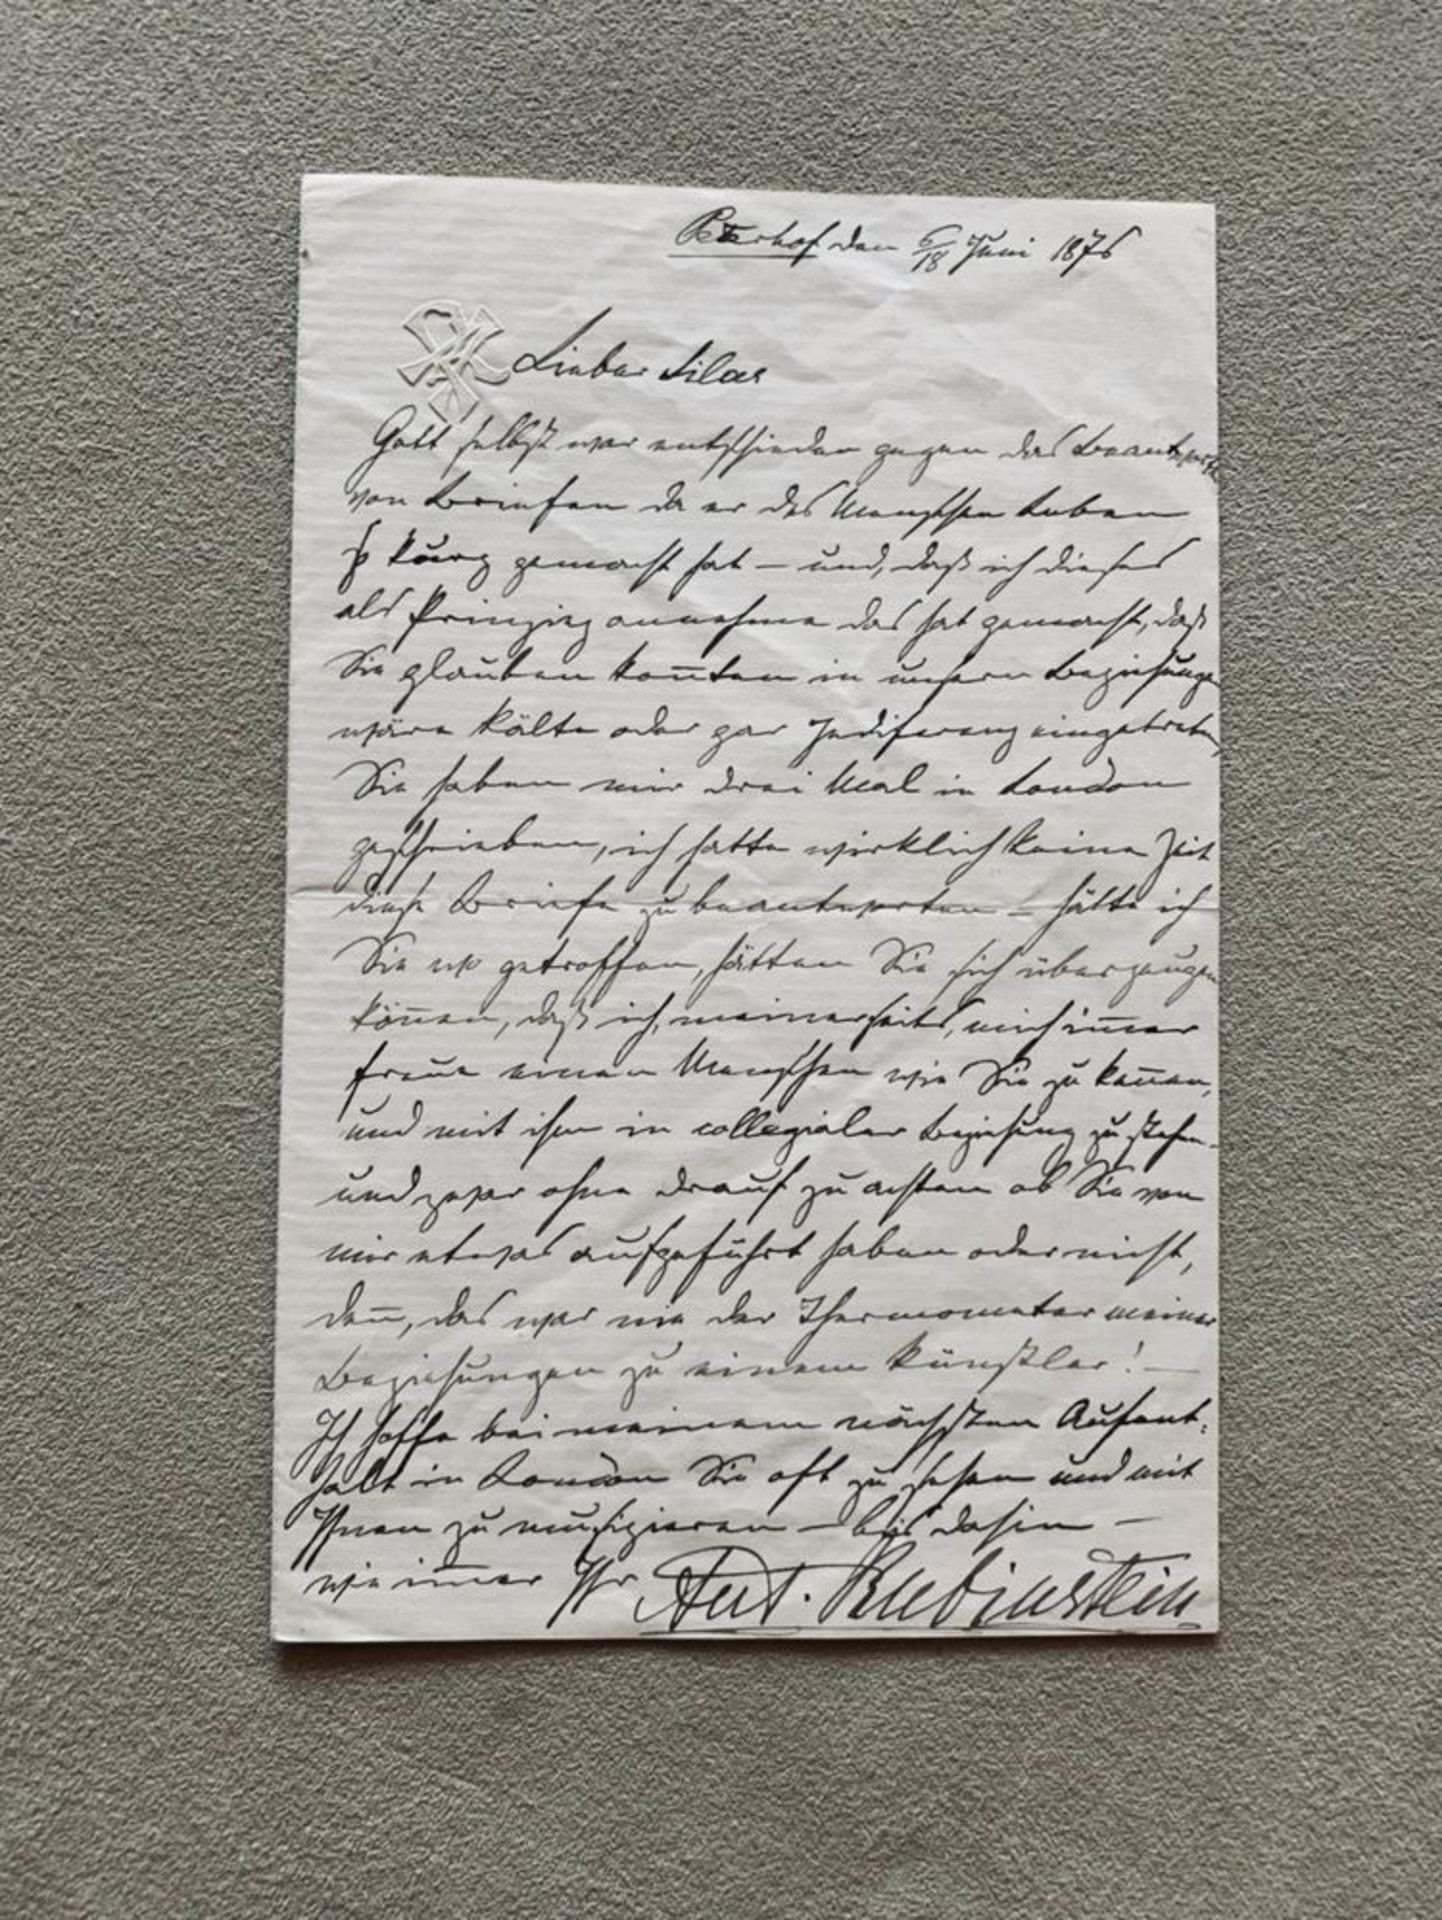 Peterhof den 6/18 Juni 1876
Lieber Silas
Gott selbst war entschieden gegen das Beantworten
von Briefen da er das Menschen Leben
so kurz gemacht hat – und, daß ich dieses
als Prinzip annehme das hat gemacht, daß
Sie glauben kon̅ten in unsern Beziehungen
wäre Kälte oder gar Indiferenz eingetreten,
Sie haben mir drei Mal in London
geschrieben, ich hatte wirklich keine Zeit
diese Briefe zu beantworten – hätte ich
Sie wo getroffen, hätten Sie sich überzeugen
kön̅en, daß ich, meinerseits, mich im̅er
freue einen Menschen wie Sie zu ken̅en,
und mit ihm in collegialer Beziehung zu stehen –
und zwar ohne drauf zu achten ob Sie von
mir etwas aufgeführt haben oder nicht,
den̅, das war nie der Thermometer meiner
Beziehungen zu einem Künstler! —
Ich hoffe bei meinem nächsten Aufent:
halt in London Sie oft zu sehen und mit
Ihnen zu musizieren – bis dahin –
wie im̅er Ihr Ant. Rubinstein